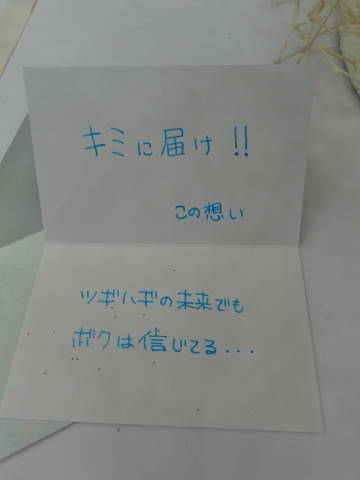 キミに届け!!
この想い
ツギハギの未来でも
ボクは信じてる...